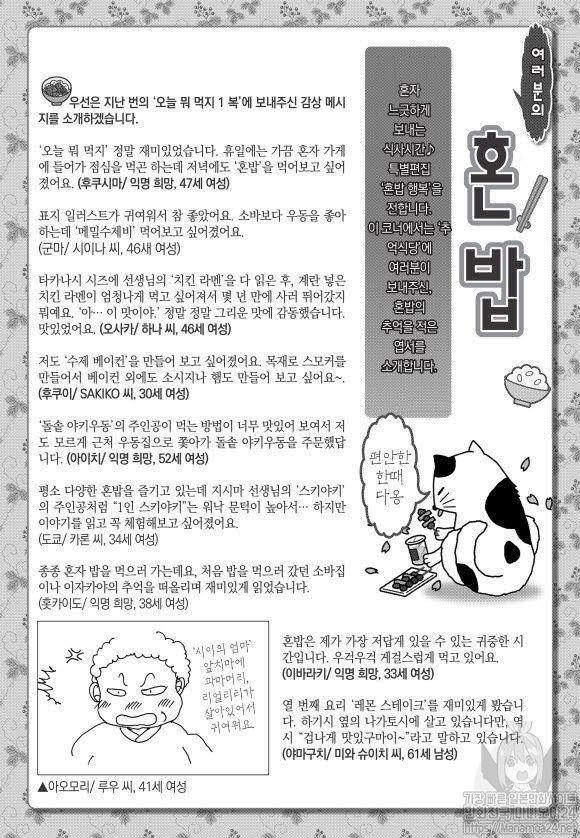 여러분의
혼밥
혼자
느긋하게
보내는
식사시간♪
특별편집
'혼밥 행복'을
전합니다.
이 코너에서는 '추
억식당'에
여러분이
보내주신,
혼밥의
추억을 적은
엽서를
소개합니다.
우선은 지난 번의 '오늘 뭐 먹지 1 복'에 보내주신 감상 메시
지를 소개하겠습니다.
'오늘 뭐 먹지' 정말 재미있었습니다. 휴일에는 가끔 혼자 가게
에 들어가 점심을 먹곤 하는데 저녁에도 '혼밥'을 먹어보고 싶어
졌어요. (후쿠시마/ 익명 희망, 47세 여성)
표지 일러스트가 귀여워서 참 좋았어요. 소바보다 우동을 좋아
하는데 '메밀수제비' 먹어보고 싶어졌어요.
(군마/ 시이나 씨, 46새 여성)
타카나시 시즈에 선생님의 '치킨 라멘'을 다 읽은 후, 계란 넣은
치킨 라멘이 엄청나게 먹고 싶어져서 몇 년 만에 사러 뛰어갔지
뭐예요. '아… 이 맛이야.' 정말 정말 그리운 맛에 감동했습니다.
맛있었어요. (오사카/ 하나 씨, 46세 여성)
저도 '수제 베이컨'을 만들어 보고 싶어졌어요. 목재로 스모커를
만들어서 베이컨 외에도 소시지나 햄도 만들어 보고 싶어요~.
(후쿠이/ SAKIKO 씨, 30세 여성)
'돌솥 야키우동'의 주인공이 먹는 방법이 너무 맛있어 보여서 저
도 모르게 근처 우동집으로 쫓아가 돌솥 야키우동을 주문했답
니다. (아이치/ 익명 희망, 52세 여성)
평소 다양한 혼밥을 즐기고 있는데 지시마 선생님의 '스키야키'
의 주인공처럼 "1인 스키야키"는 워낙 문턱이 높아서… 하지만
이야기를 읽고 꼭 체험해보고 싶어졌어요.
(도쿄/ 카론 씨, 34세 여성)
종종 혼자 밥을 먹으러 가는데요, 처음 밥을 먹으러 갔던 소바집
이나 이자카야의 추억을 떠올리며 재미있게 읽었습니다.
(홋카이도/ 익명 희망, 38세 여성)
편안한
한때
다옹
'시이의 엄마'
앞치마에
파마머리,
리얼리리가
살아있어서
귀여워요
▲아오모리/ 루우 씨, 41세 여성
혼밥은 제가 가장 저답게 있을 수 있는 귀중한 시
간입니다. 우걱우걱 게걸스럽게 먹고 있어요.
(이바라키/ 익명 희망, 33세 여성)
열 번째 요리 '레몬 스테이크'를 재미있게 봤습니
다. 하기시 옆의 나가토시에 살고 있습니다만, 역
시 "겁나게 맛있구마이~"라고 말하고 있습니다.
(야마구치/ 미와 슈이치 씨, 61세 남성)
가장 빠른 일본만화 사이트